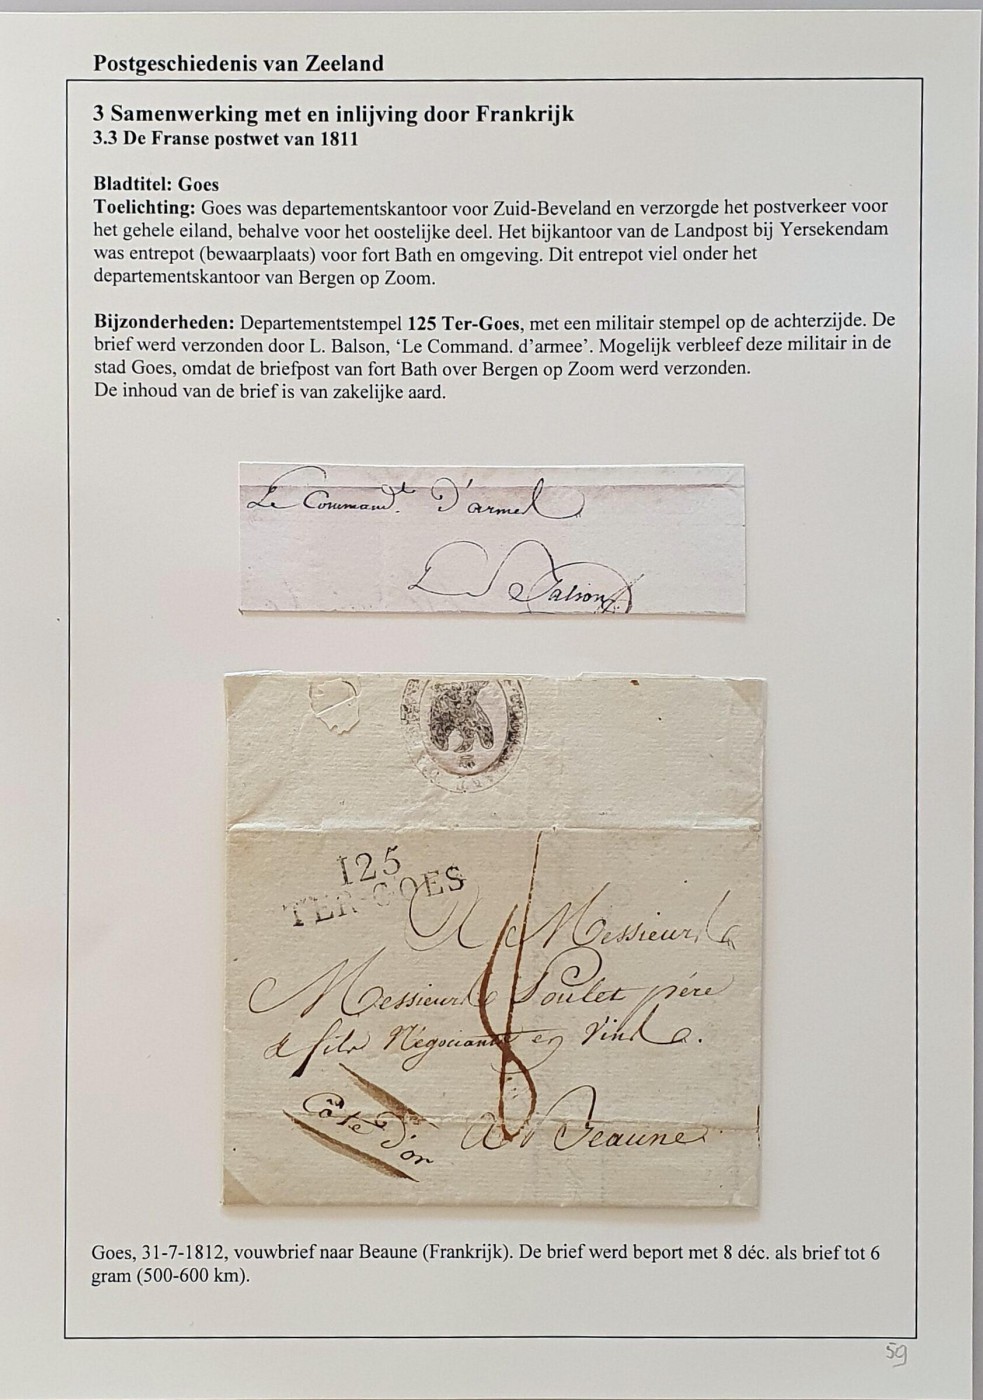 Postgeschiedenis van Zeeland
3 Samenwerking met en inlijving door Frankrijk
3.3 De Franse postwet van 1811
Bladtitel: Goes
Toelichting: Goes was departementskantoor voor Zuid-Beveland en verzorgde het postverkeer voor
het gehele eiland, behalve voor het oostelijke deel. Het bijkantoor van de Landpost bij Yersekendam
was entrepot (bewaarplaats) voor fort Bath en omgeving. Dit entrepot viel onder het
departementskantoor van Bergen op Zoom.
Bijzonderheden: Departementstempel 125 Ter-Goes, met een militair stempel op de achterzijde. De
brief werd verzonden door L. Balson, ‘Le Command. d’armee’. Mogelijk verbleef deze militair in de
stad Goes, omdat de briefpost van fort Bath over Bergen op Zoom werd verzonden.
De inhoud van de brief is van zakelijke aard.
Le Command.t D'armes
L Balson
125
TER-GOES
A Messieurs
Messieurs Poulet père
& fils Négociants en Vins.
Côte D'or
A Beaune
8
Goes, 31-7-1812, vouwbrief naar Beaune (Frankrijk). De brief werd beport met 8 déc. als brief tot 6
gram (500-600 km).
59